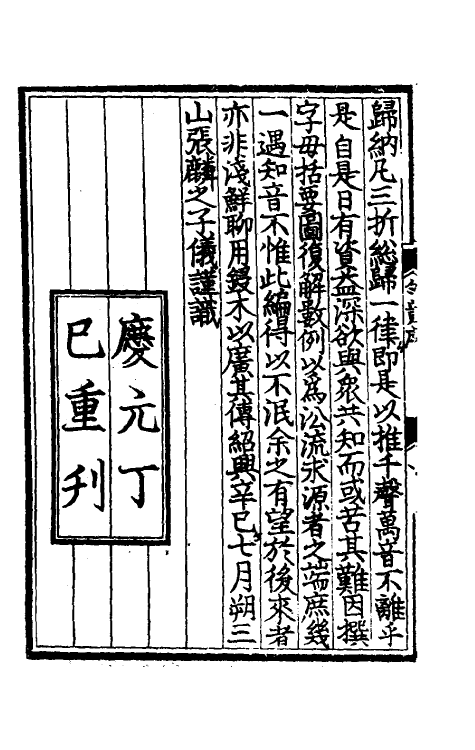 歸納凡三折総歸一律即是以推千聲萬音不離乎
是自是日有資益深欲與衆共知而或苦其難因撰
字母括要圖復解數例以爲㳂流求源者之端庶幾
一遇知音不惟此編得以不泯余之有望於後來者
亦非淺鮮聊用鋟木以廣其傳紹興辛巳七月朔三
山張麟之子儀謹識
慶元丁
巳重刋